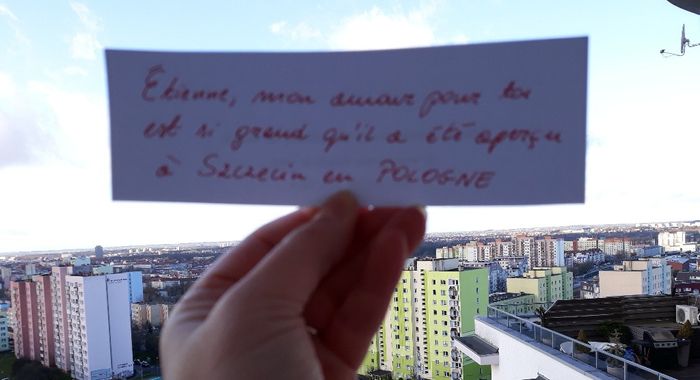 Étienne, mon amour pour toi
est si grand qu'il a été aperçu
à Szczecin en POLOGNE